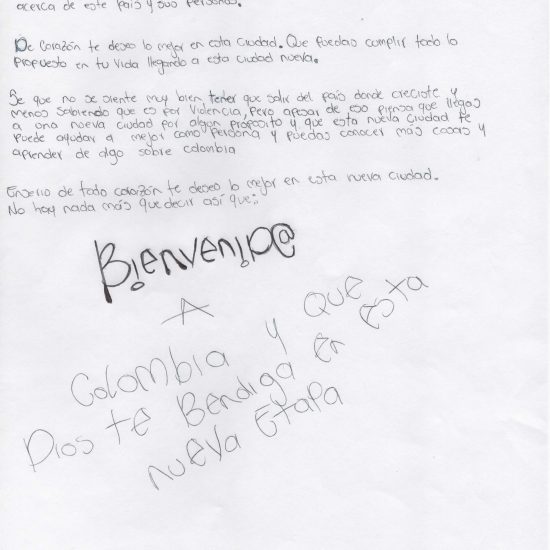 acerca de este país y sus personas.
De corazón te deseo lo mejor en esta ciudad. Que puedas cumplir todo lo
propuesto en tu vida llegando a esta ciudad nueva.
Se que no se siente muy bien tener que salir del país donde creciste y
menos sabiendo que es por violencia, pero apesar de eso piensa que llegas
a una nueva ciudad por algun proposito y que esta nueva ciudad te
puede ayudar a mejor como persona y puedas conocer más cosas y
aprender de algo sobre colombia
Enserio de todo corazón te deseo lo mejor en esta nueva ciudad.
No hay nada más que decir así que:
Bienvenid@
A
Colombia y que
Dios te Bendiga en esta
nueva Etapa